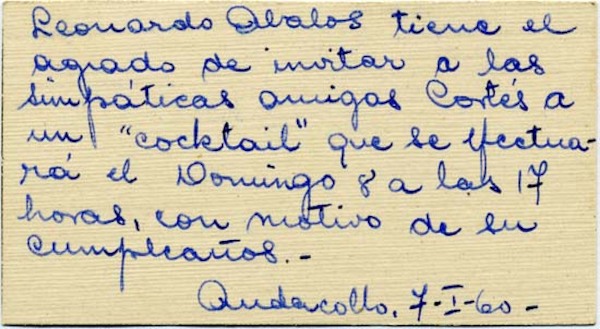 Leonardo Abalos tiene el
agrado de invitar a las
simpáticas amigas Cortés a
un "cocktail" que se efectua-
rá el Domingo 8 a las 17
horas, con motivo de su
cumpleaños.-
Andacollo, 7-I-60-